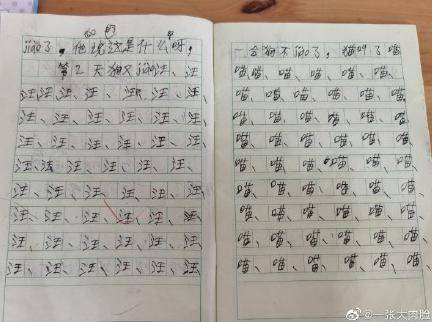 闹了。他说这是什么呀，
第2天狗又闹汪、汪
汪汪、汪、汪、汪、汪、汪、
汪、汪、汪、汪、汪、汪、
汪、汪、汪、汪、汪、汪、
汪、汪、汪、汪、汪、汪、
汪、汪、汪、汪、汪、汪、
汪、汪、汪、汪、汪、汪、
汪、汪、汪、汪、汪、汪、
汪、汪、汪、汪、汪、汪、
一会狗不闹了，猫叫了喵
喵喵、喵、喵、喵、喵、
喵、喵、喵、喵、喵、喵、
喵、喵、喵、喵、喵、喵、
喵、喵、喵、喵、喵、喵、
喵、喵、喵、喵、喵、喵、
喵、喵、喵、喵、喵、喵、
喵、喵、喵、喵、喵、喵、
喵、喵、喵、喵、喵、喵、
喵、喵、喵、喵、喵、喵、
@一张大肉脸